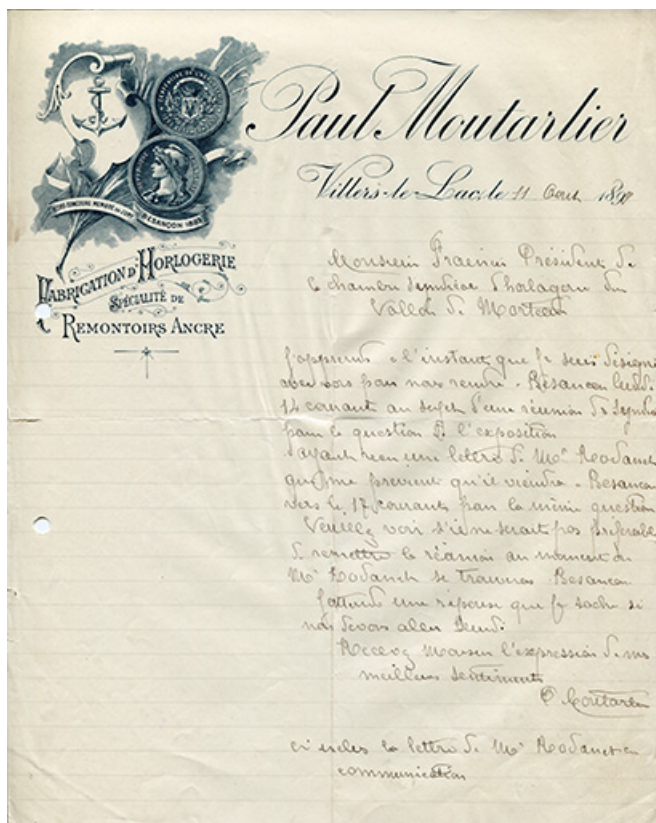 Paul Moutarlier
Villers-le-Lac, le 11 Aout 1898
BESANÇON 1893
FABRICATION D'HORLOGERIE
SPÉCIALITÉ DE
REMONTOIRS ANCRE
Monsieur Président de
la chambre syndicale d'horlogerie du
Vallon de Morteau
J'apprends à l'instant que je suis désigné
avec vous pour nous rendre à Besançon lundi
14 courant au sujet d'une réunion de
pour la question de l'exposition
ayant reçu une lettre de Mr Rodanet
qui me prévient qu'il viendra à Besançon
vers le 17 courant pour la même question
Veuillez voir s'il ne serait pas préférable
de remettre la réunion au moment où
Mr Rodanet se trouvera à Besançon
J'attends une réponse que je sache si
nous devons aller
Recevez Monsieur l'expression de mes
meilleurs sentiments
P Moutarlier
ci inclus la lettre de Mr Rodanet en
communication